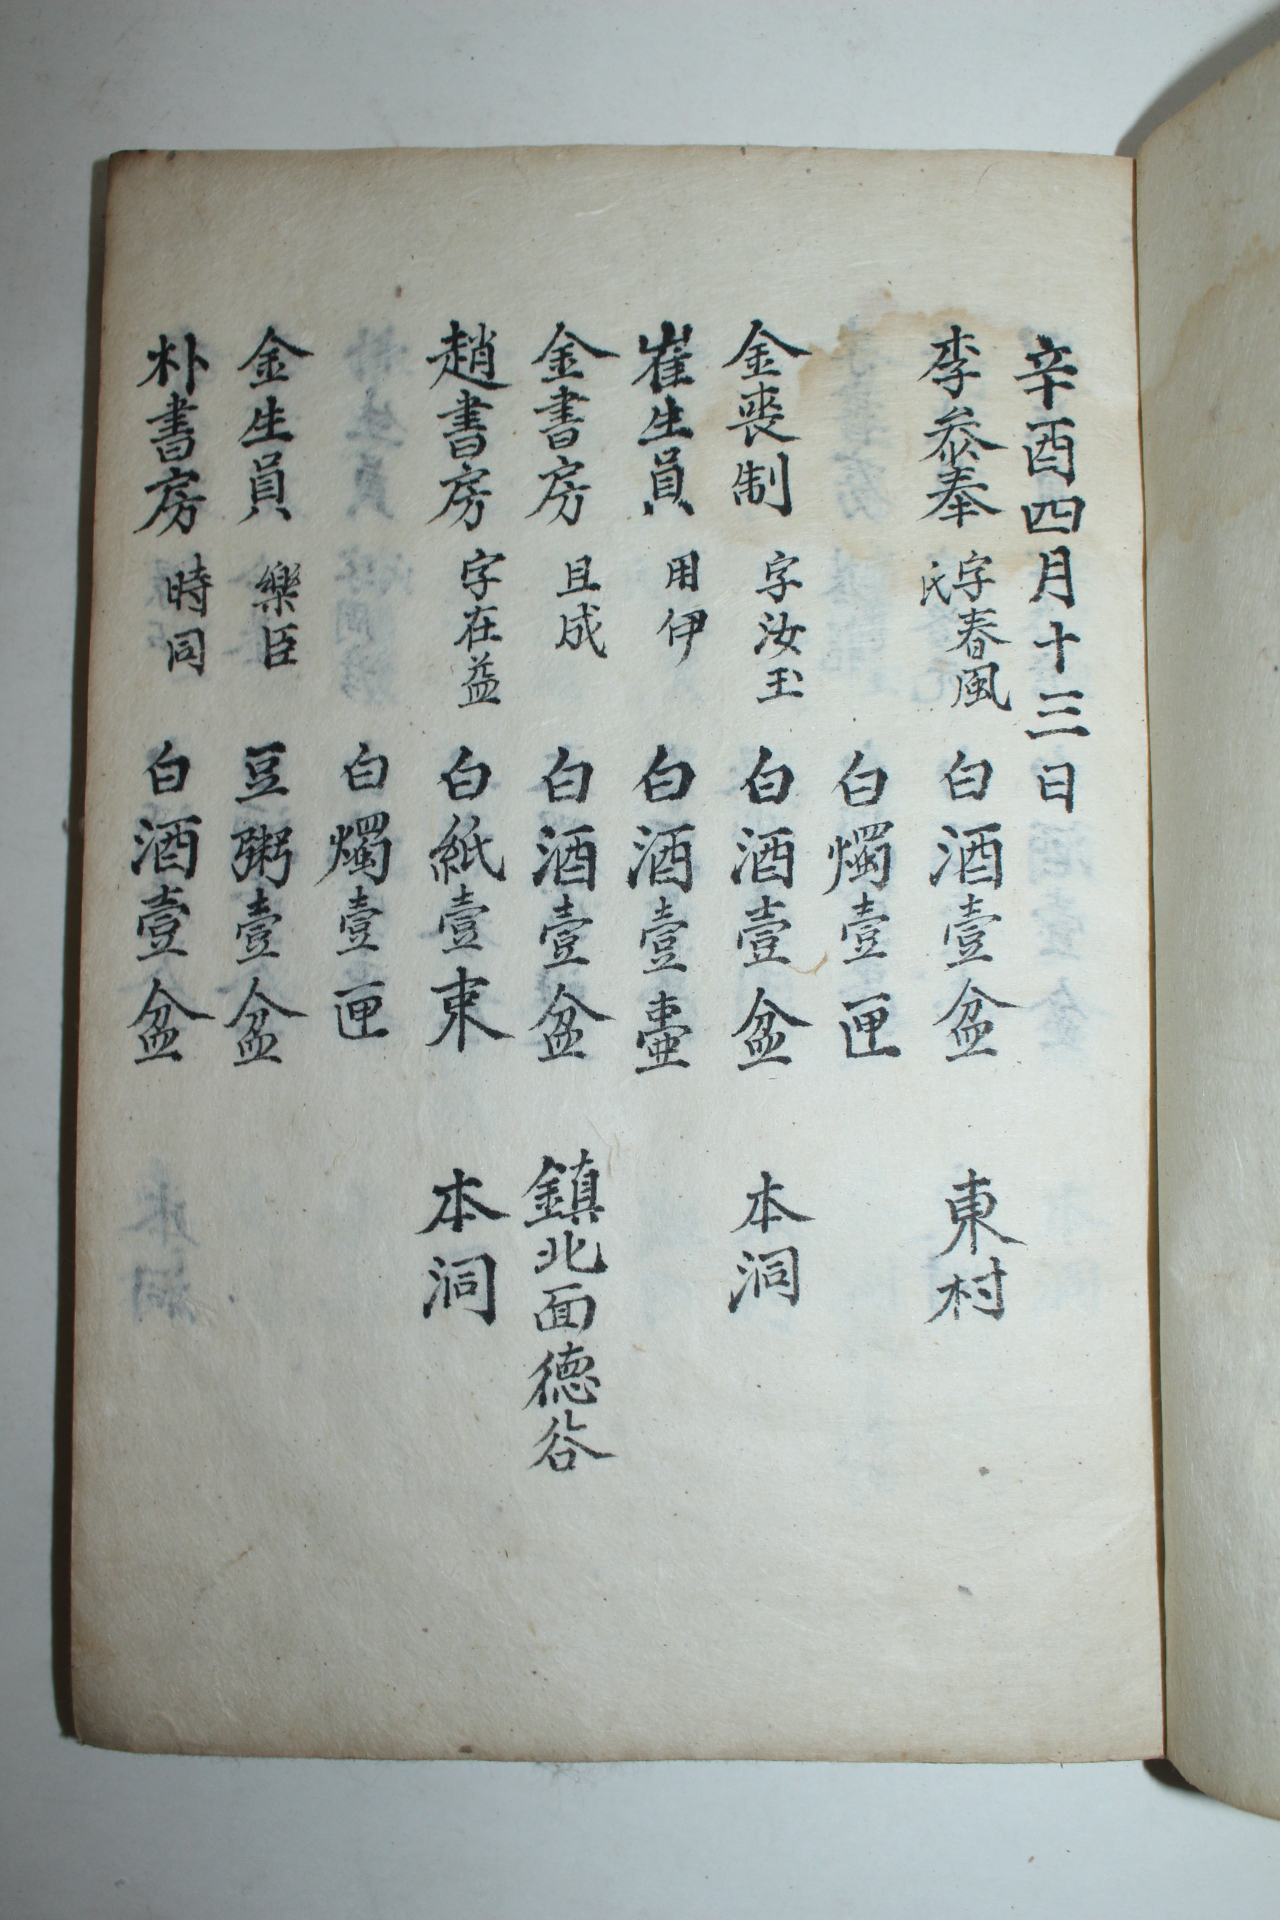 辛酉四月十三日
李叅奉 字春風氏 白酒壹盆 東村
白燭壹匣
金喪制 字汝玉 白酒壹盆 本洞
崔生員 用伊 白酒壹壷
金書房 且成 白酒壹盆 鎮北面德谷
趙書房 字在益 白紙壹束 本洞
白燭壹匣
金生員 樂臣 豆粥壹盆
朴書房 時同 白酒壹盆